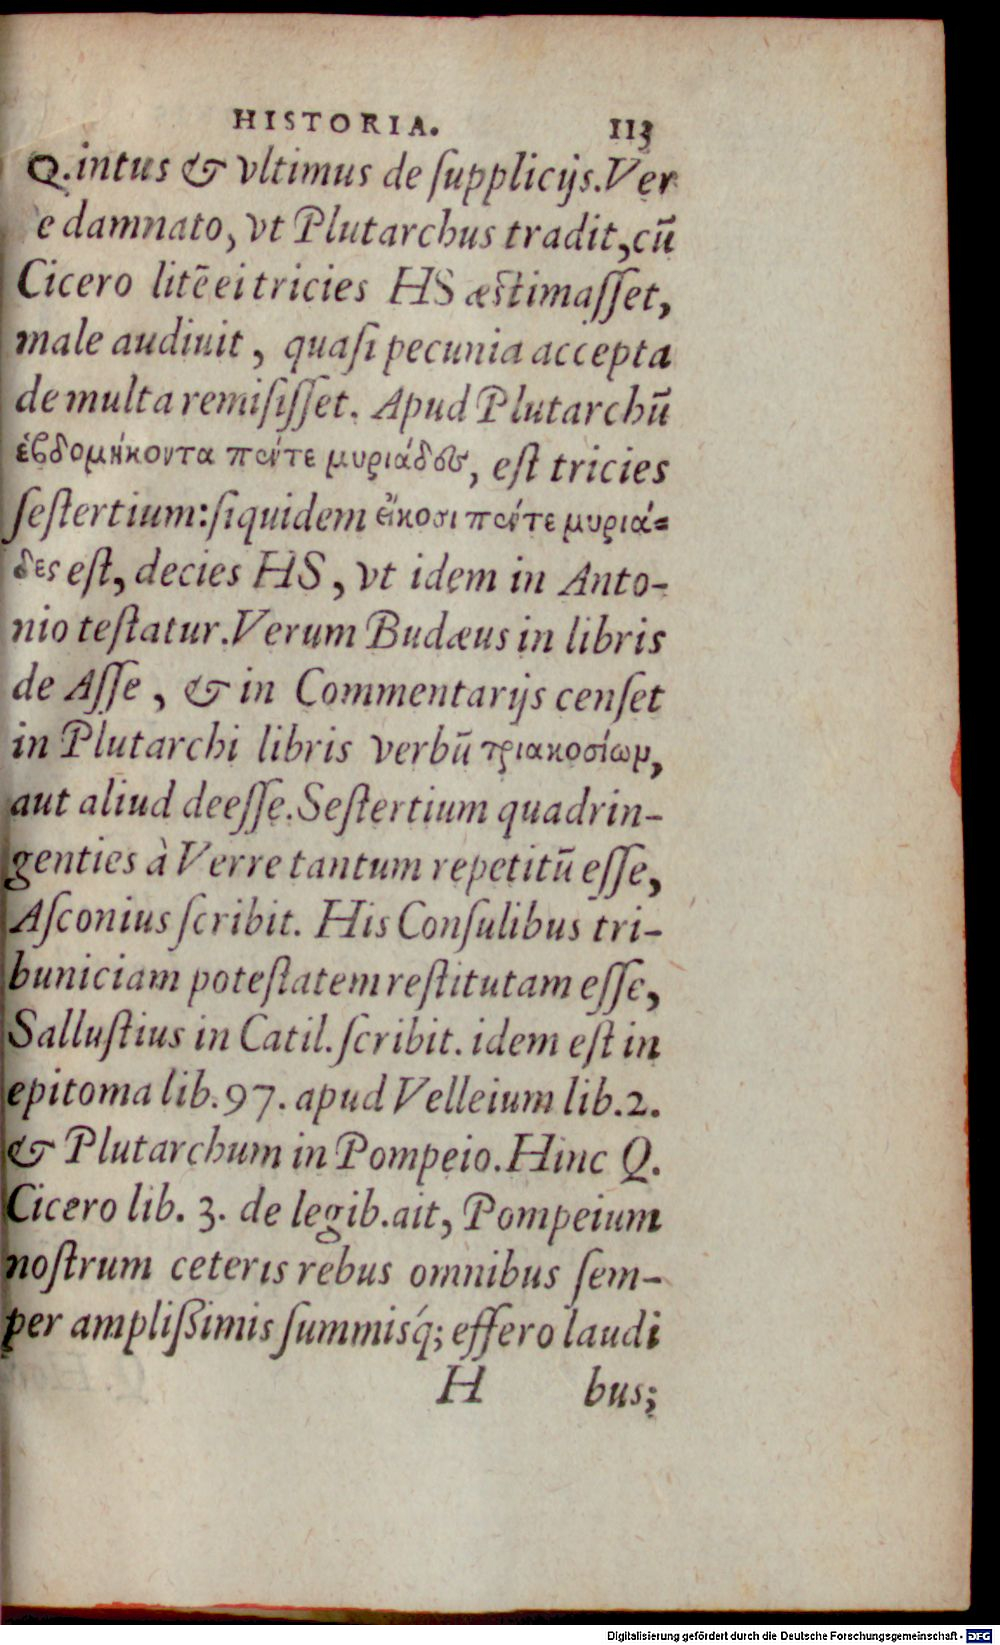 HISTORIA. 113
Q.intus & vltimus de ſupplicijs.Ver
e damnato, vt Plutarchus tradit,cū
Cicero litē ei tricies HS æſtimaſſet,
male audiuit, quaſi pecunia accepta
de multa remiſiſſet. Apud Plutarchū
ἑβδομήκοντα πέντε μυριάδας, eſt tricies
ſeſtertium:ſiquidem εἴκοσι πέντε μυριά=
δες eſt, decies HS, vt idem in Anto-
nio teſtatur.Verum Budæus in libris
de Aſſe, & in Commentarijs cenſet
in Plutarchi libris verbū τριακοσίων,
aut aliud deeſſe.Seſtertium quadrin-
genties à Verre tantum repetitū eſſe,
Aſconius ſcribit. His Conſulibus tri-
buniciam poteſtatem reſtitutam eſſe,
Salluſtius in Catil.ſcribit. idem eſt in
epitoma lib.97. apud Velleium lib.2.
& Plutarchum in Pompeio.Hinc Q.
Cicero lib. 3. de legib.ait, Pompeium
noſtrum ceteris rebus omnibus ſem-
per ampliſſimis ſummisq́; effero laudi
H bus;
Digitalisierung gefördert durch die Deutsche Forschungsgemeinschaft - DFG